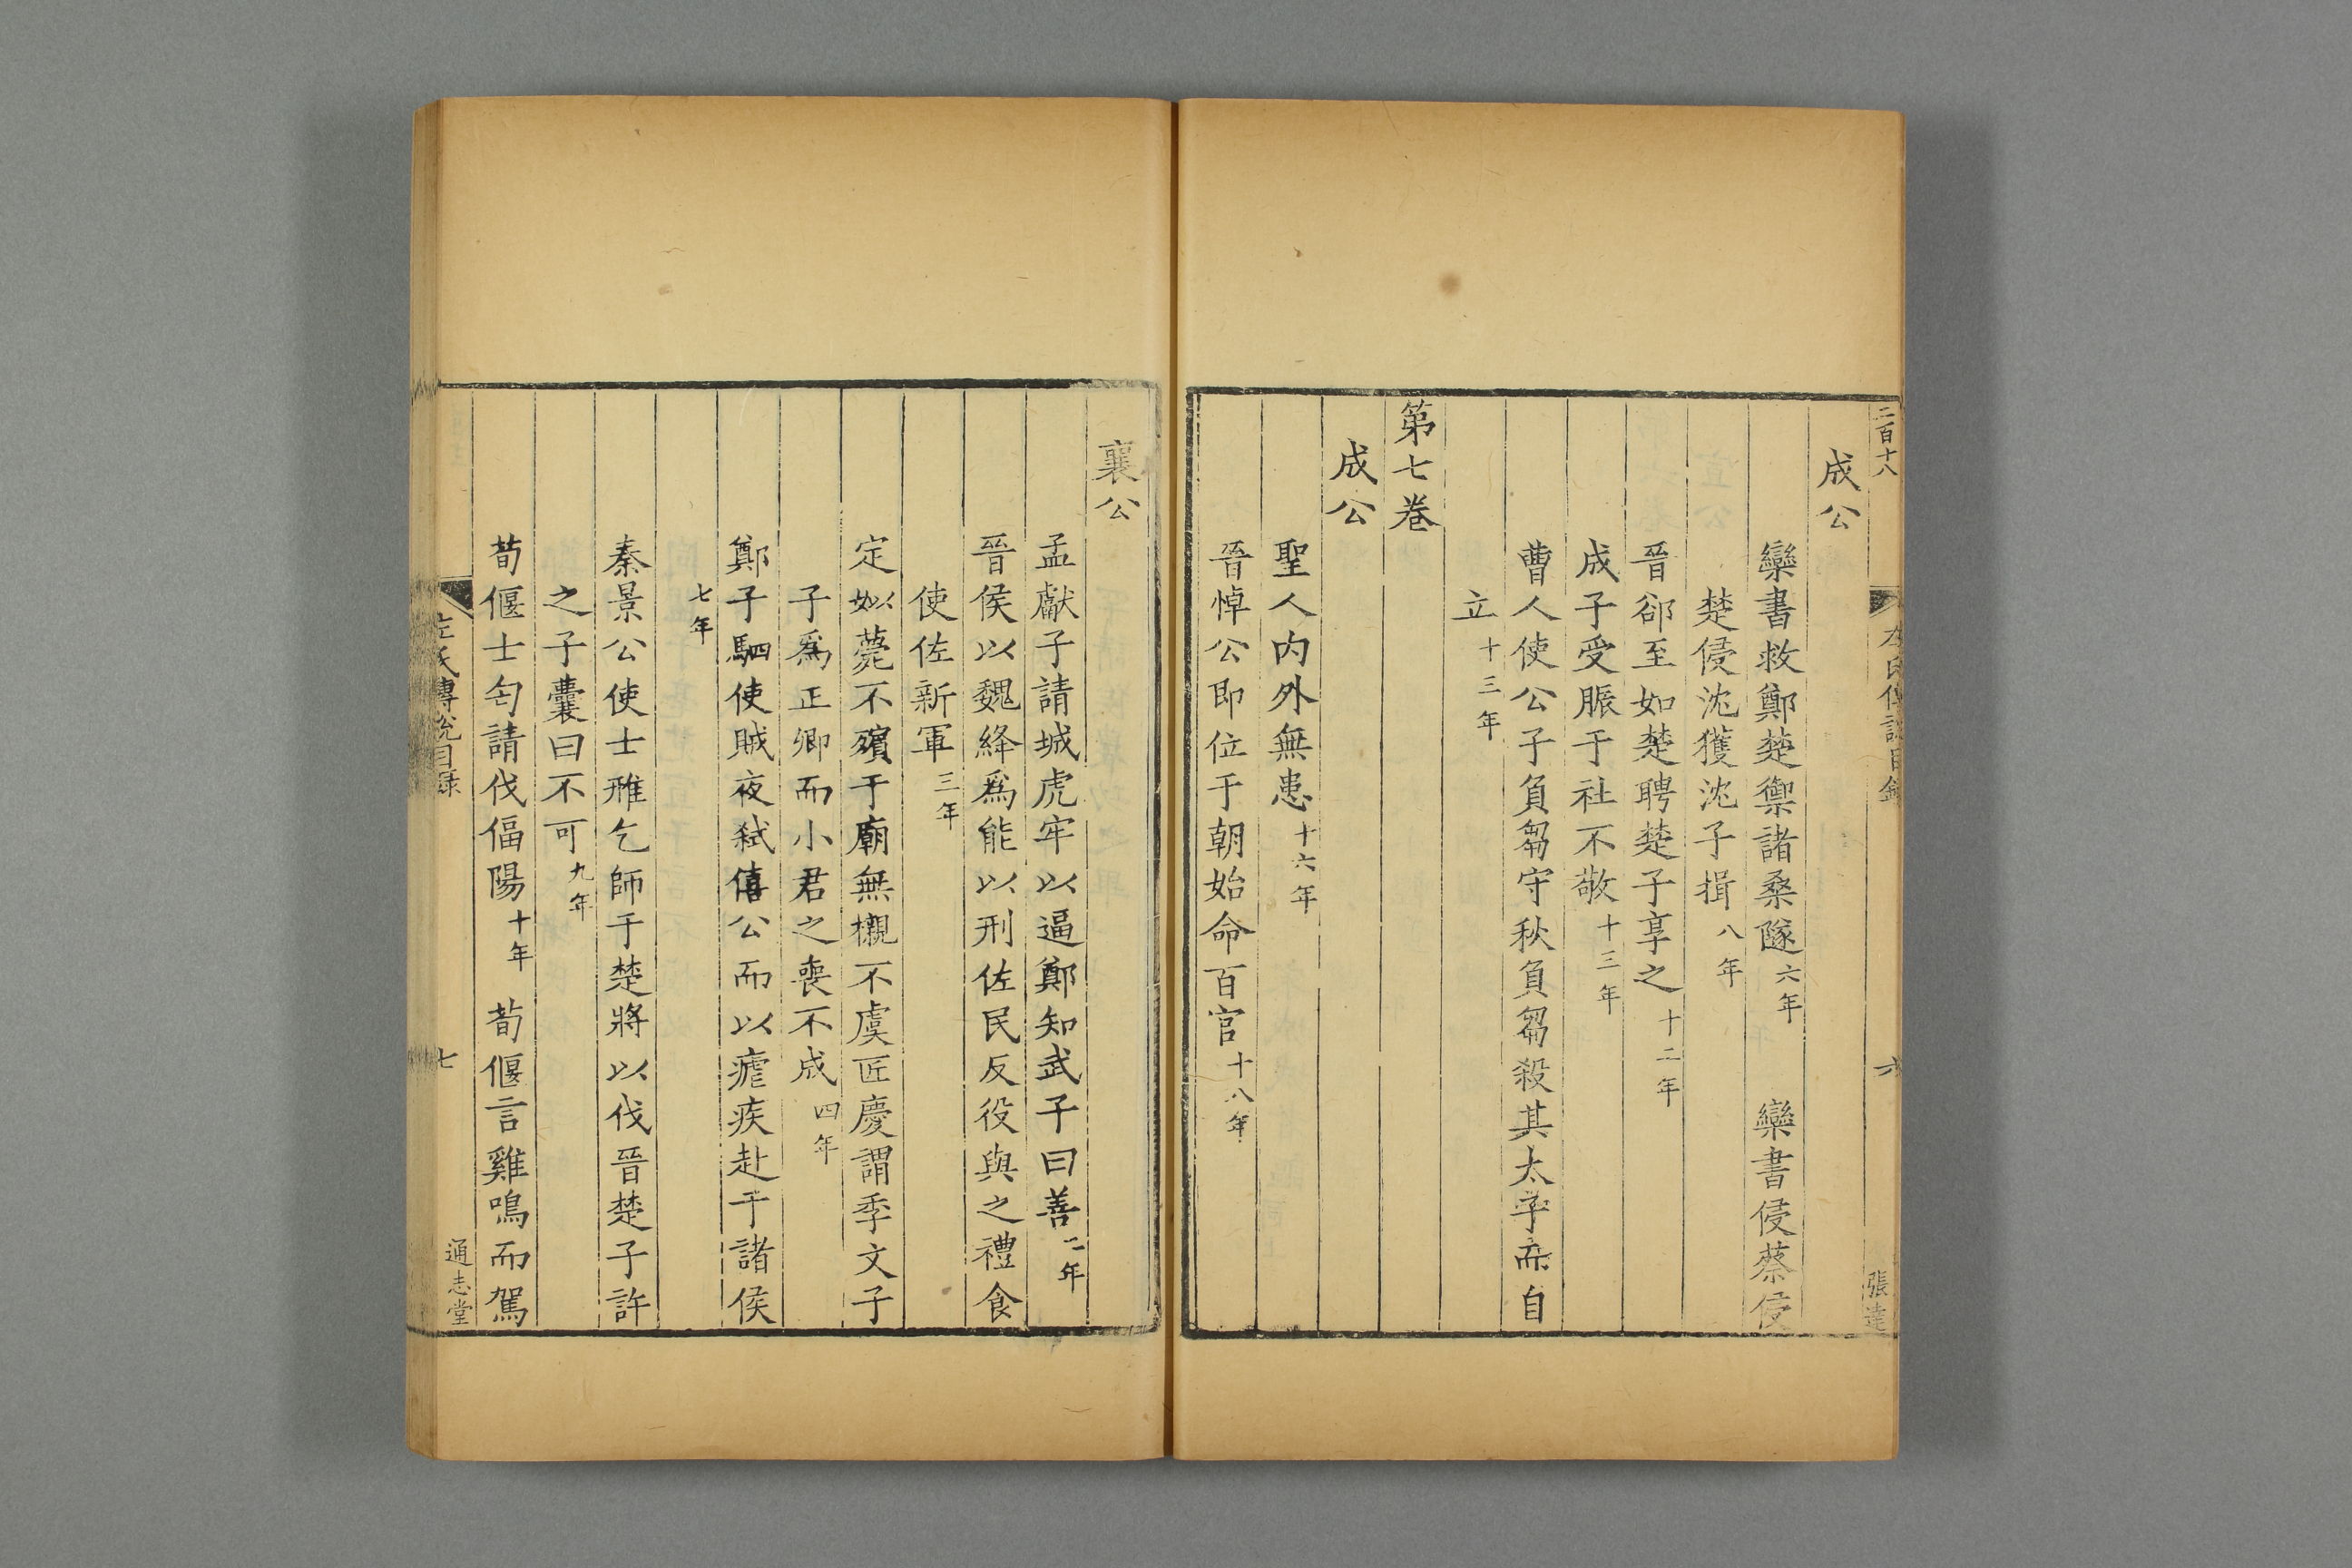 二百十八
六
張達
成公
欒書救鄭楚禦諸桑隧六年 欒書侵蔡侵
楚侵沈獲沈子揖八年
晉郤至如楚聘楚子享之十二年
成子受脤于社不敬十三年
曹人使公子負芻守秋負芻殺其太子而自
立十三年
第七卷
成公
聖人內外無患十六年
晉悼公即位于朝始命百官十八年
襄公
孟獻子請城虎牢以逼鄭知武子曰善二年
晉侯以魏絳爲能以刑佐民反役與之禮食
使佐新軍三年
定姒薨不殯于廟無櫬不虞匠慶謂季文子
子爲正卿而小君之喪不成四年
鄭子駟使賊夜弒僖公而以瘧疾赴于諸侯
七年
秦景公使士雃乞師于楚將以伐晉楚子許
之子囊曰不可九年
荀偃士匄請伐偪陽十年 荀偃言雞鳴而駕
左氏傳說目錄
七
通志堂